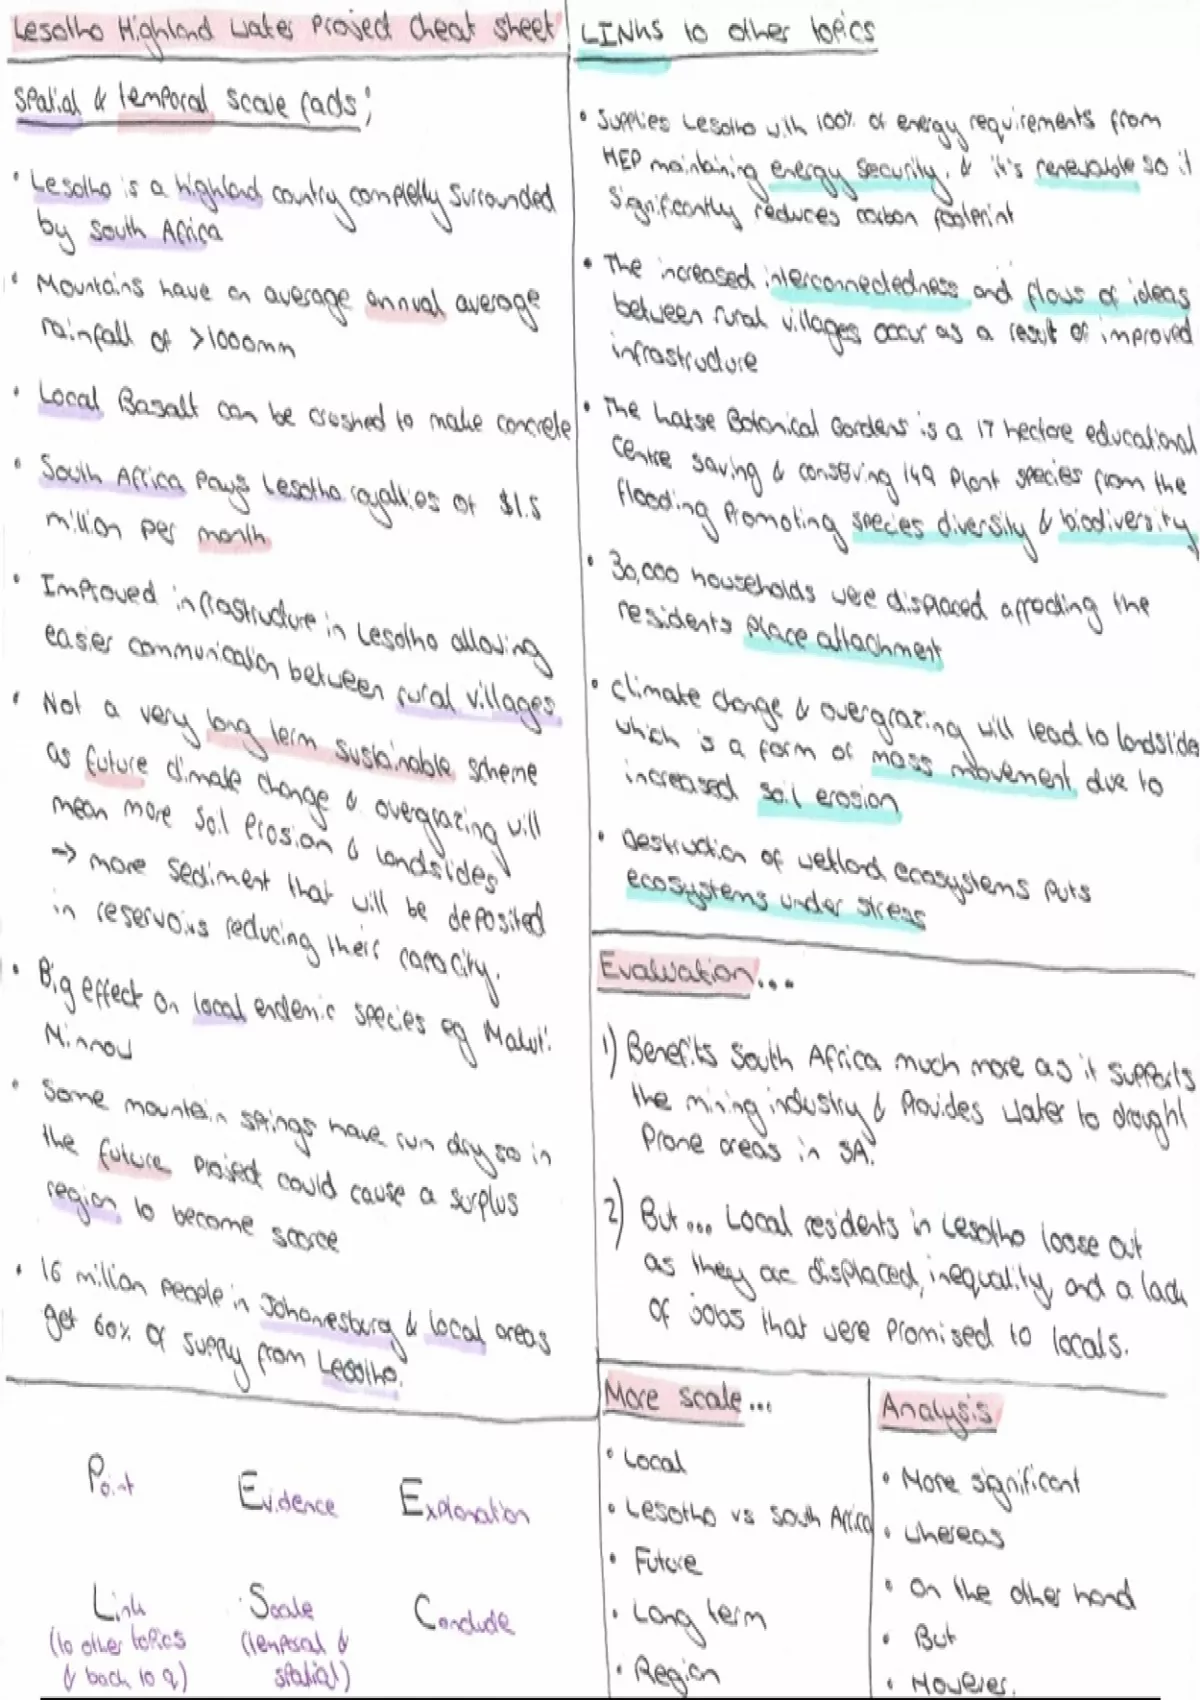 Lesotho Highland Water Project Cheat sheet
Spatial & temporal scale facts;
• Lesotho is a highland country completly surrounded
by South Africa
• Mountains have an average annual average
rainfall of >1000mm
• Local Basalt can be crushed to make concrete
• South Africa pays Lesotho royalties of $1.5
million per month
• Improved infrastructure in Lesotho allowing
easier communication between rural villages
• Not a very long term sustainable scheme
as future climate change & overgrazing will
mean more soil erosion & landslides
-> more sediment that will be deposited
in reservoirs reducing their capacity.
• Big effect on local endemic species eg Maluti
Minnow
• Some mountain springs have run dry so in
the future project could cause a surplus
region to become scarce
• 16 million people in Johanesburg & local areas
get 60% of supply from Lesotho.
Point Evidence Explanation
Link Scale Conclude
(to other topics (temporal &
& back to q) spatial)
LINKS to other topics
• Supplies Lesotho with 100% of energy requirements from
HEP maintaining energy security, & it's renewable so it
significantly reduces carbon footprint
• The increased interconnectedness and flows of ideas
between rural villages occur as a result of improved
infrastructure
• The Katse Botanical Gardens is a 17 hectare educational
centre saving & conserving 149 plant species from the
flooding promoting species diversity & biodiversity
• 30,000 households were displaced affecting the
residents place attachment
• Climate change & overgrazing will lead to landslide
which is a form of mass movement due to
increased soil erosion
• Destruction of wetland ecosystems puts
ecosystems under stress
Evaluation...
1) Benefits South Africa much more as it supports
the mining industry & provides water to drought
prone areas in SA.
2) But... Local residents in Lesotho loose out
as they are displaced, inequality, and a lack
of jobs that were promised to locals.
More scale...
• Local
• Lesotho vs South Africa
• Future
• Long term
• Region
Analysis
• More significant
• Whereas
• On the other hand
• But
• However.